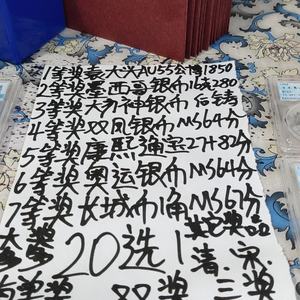 1等奖袁大头AU55公博1850
2等奖墨西哥银币280
3等奖大力神银币后铸
4等奖双凤银币MS64分
5等奖康熙通宝27H82分
6等奖奥运银币MS64分
7等奖长城币1涌MS67分
其它奖品
大奖
20选1
清.宋
双奖
三奖